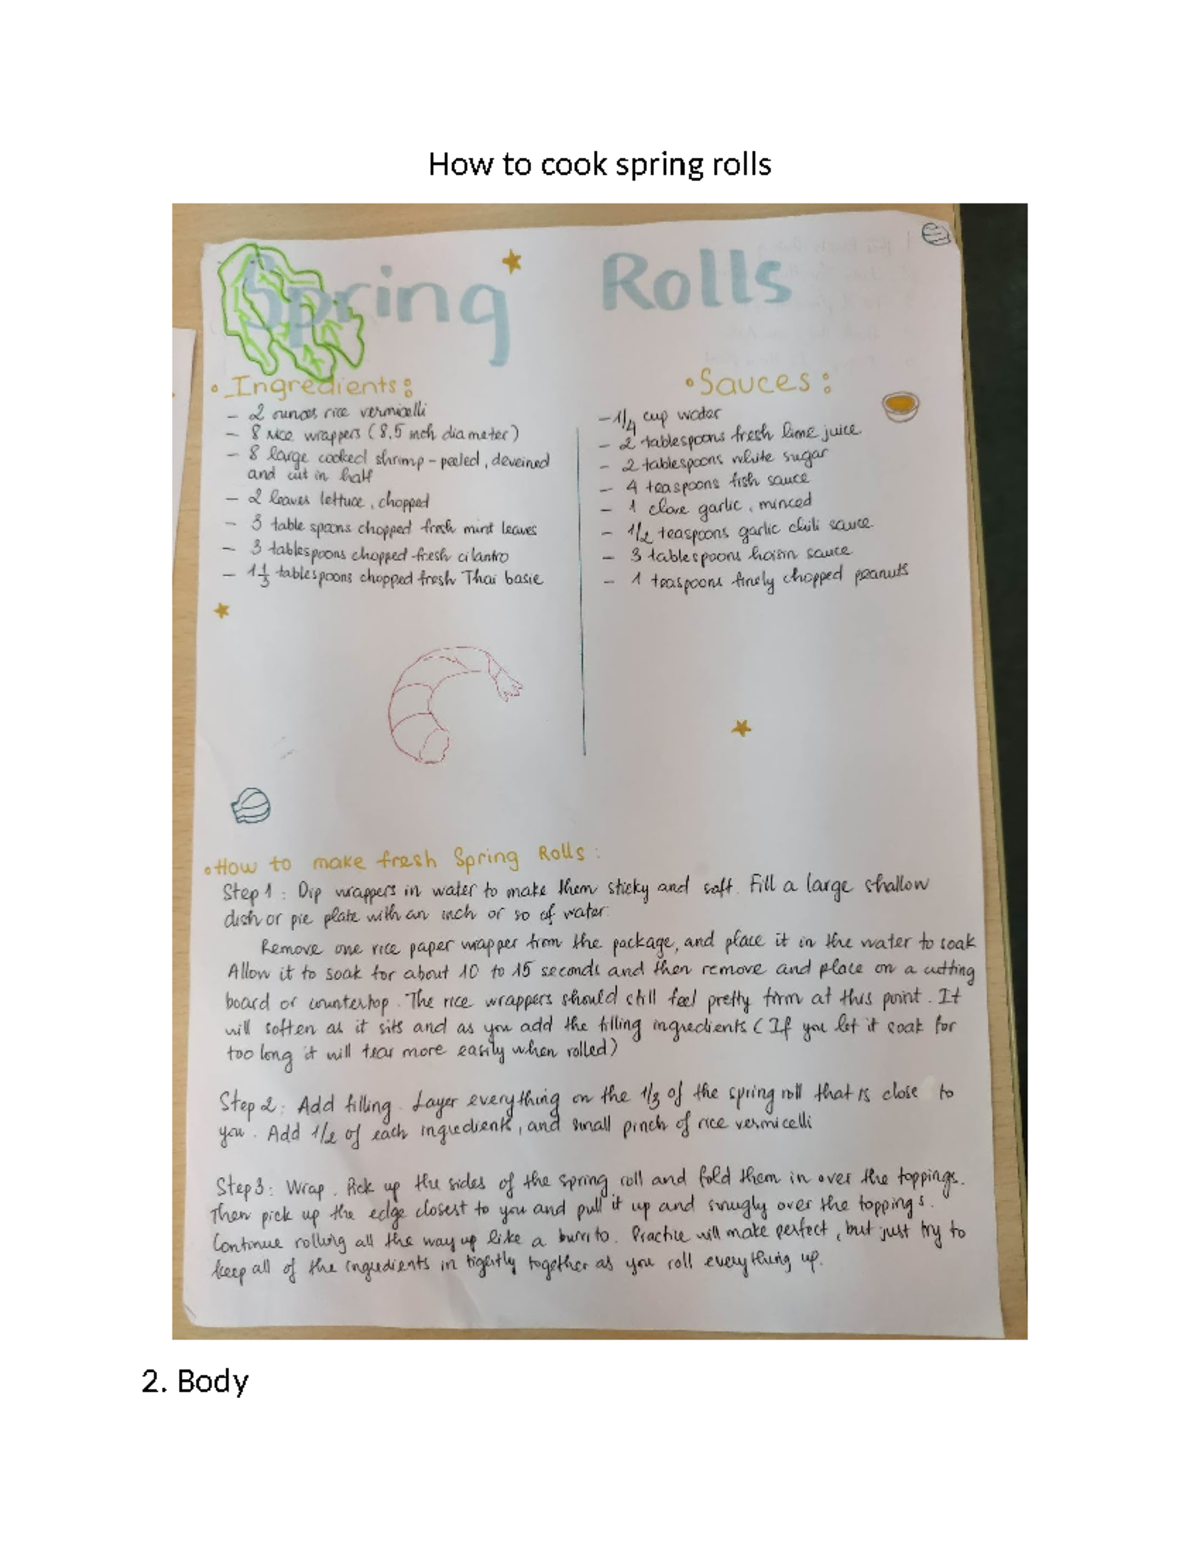 How to cook spring rolls
Spring Rolls
• Ingredients:
– 2 ounces rice vermicelli
– 8 rice wrappers (8.5 inch diameter)
– 8 large cooked shrimp - peeled, deveined
and cut in half
– 2 leaves lettuce, chopped
– 3 table spoons chopped fresh mint leaves
– 3 tablespoons chopped fresh cilantro
– 1 1/3 tablespoons chopped fresh Thai basie
• Sauces:
– 1/4 cup water
– 2 tablespoons fresh lime juice
– 2 tablespoons white sugar
– 4 teaspoons fish sauce
– 1 clove garlic, minced
– 1/2 teaspoons garlic chili sauce
– 3 tablespoons hoisin sauce
– 1 teaspoons finely chopped peanuts
• How to make fresh Spring Rolls:
Step 1: Dip wrappers in water to make them sticky and soft. Fill a large shallow
dish or pie plate with an inch or so of water.
Remove one rice paper wrapper from the package, and place it in the water to soak
Allow it to soak for about 10 to 15 seconds and then remove and place on a cutting
board or countertop. The rice wrappers should still feel pretty firm at this point. It
will soften as it sits and as you add the filling ingredients (If you let it soak for
too long it will tear more easily when rolled)
Step 2: Add filling. Layer everything on the 1/3 of the spring roll that is close to
you. Add 1/2 of each ingredients, and small pinch of rice vermicelli
Step 3: Wrap. Pick up the sides of the spring roll and fold them in over the toppings.
Then pick up the edge closest to you and pull it up and snugly over the toppings.
Continue rolling all the way up like a burrito. Practice will make perfect, but just try to
keep all of the ingredients in tightly together as you roll everything up.
2. Body